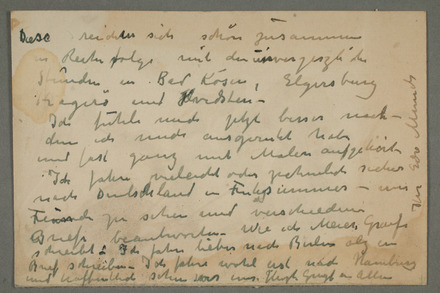 Diese reichten sich schön zusammen
in Reihenfolge mit den unvergesslichen
Stunden in Bad Kösen, Elgersburg
Kragerö und Hvidsten –
Ich fühle mich jetzt besser nach–
dem ich mich ausgeruht habe
und fast ganz mit Malen aufgehört
Ich fahre vielleicht oder ziemlich sicher
nach Deutschland in – um
Freunde zu sehen und verschiedene
Briefe beantworten – Wie ich
schreibt – Ich fahre lieber nach Berlin als ein
Brief schreiben – Ich fahre wohl erst nach Hamburg
und hoffentlich sehen wir uns. Grüße an Alle
Ihr Edv Munch